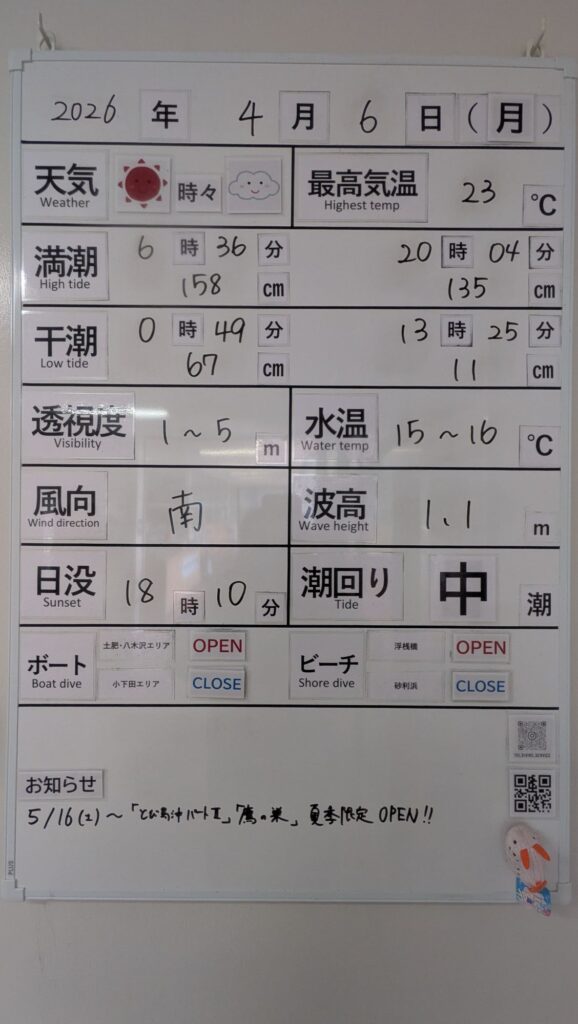 2026 年 4 月 6 日 (月)
天気 時々 最高気温 23 ℃
Weather Highest temp
満潮 6 時 36 分 20 時 04 分
High tide 158 cm 135 cm
干潮 0 時 49 分 13 時 25 分
Low tide 67 cm 11 cm
透視度 1～5 m 水温 15～16 ℃
Visibility Water temp
風向 南 波高 1.1 m
Wind direction Wave height
日没 18 時 10 分 潮回り 中 潮
Sunset Tide
ボート 土肥・八木沢エリア OPEN ビーチ 浮桟橋 OPEN
Boat dive 小下田エリア CLOSE Shore dive 砂利浜 CLOSE
お知らせ
5/16(土)～「とび島沖パートⅡ」「鷹の巣」夏季限定 OPEN!!
PLUS